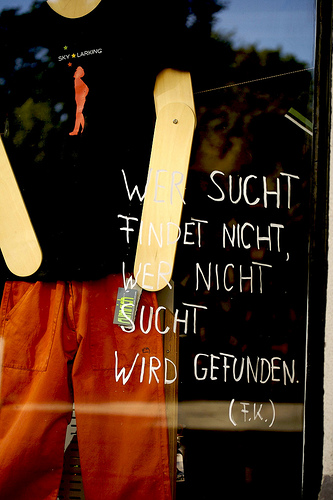 SKY LARKING
WER SUCHT
FINDET NICHT,
WER NICHT
SUCHT
WIRD GEFUNDEN.
(F.K.)